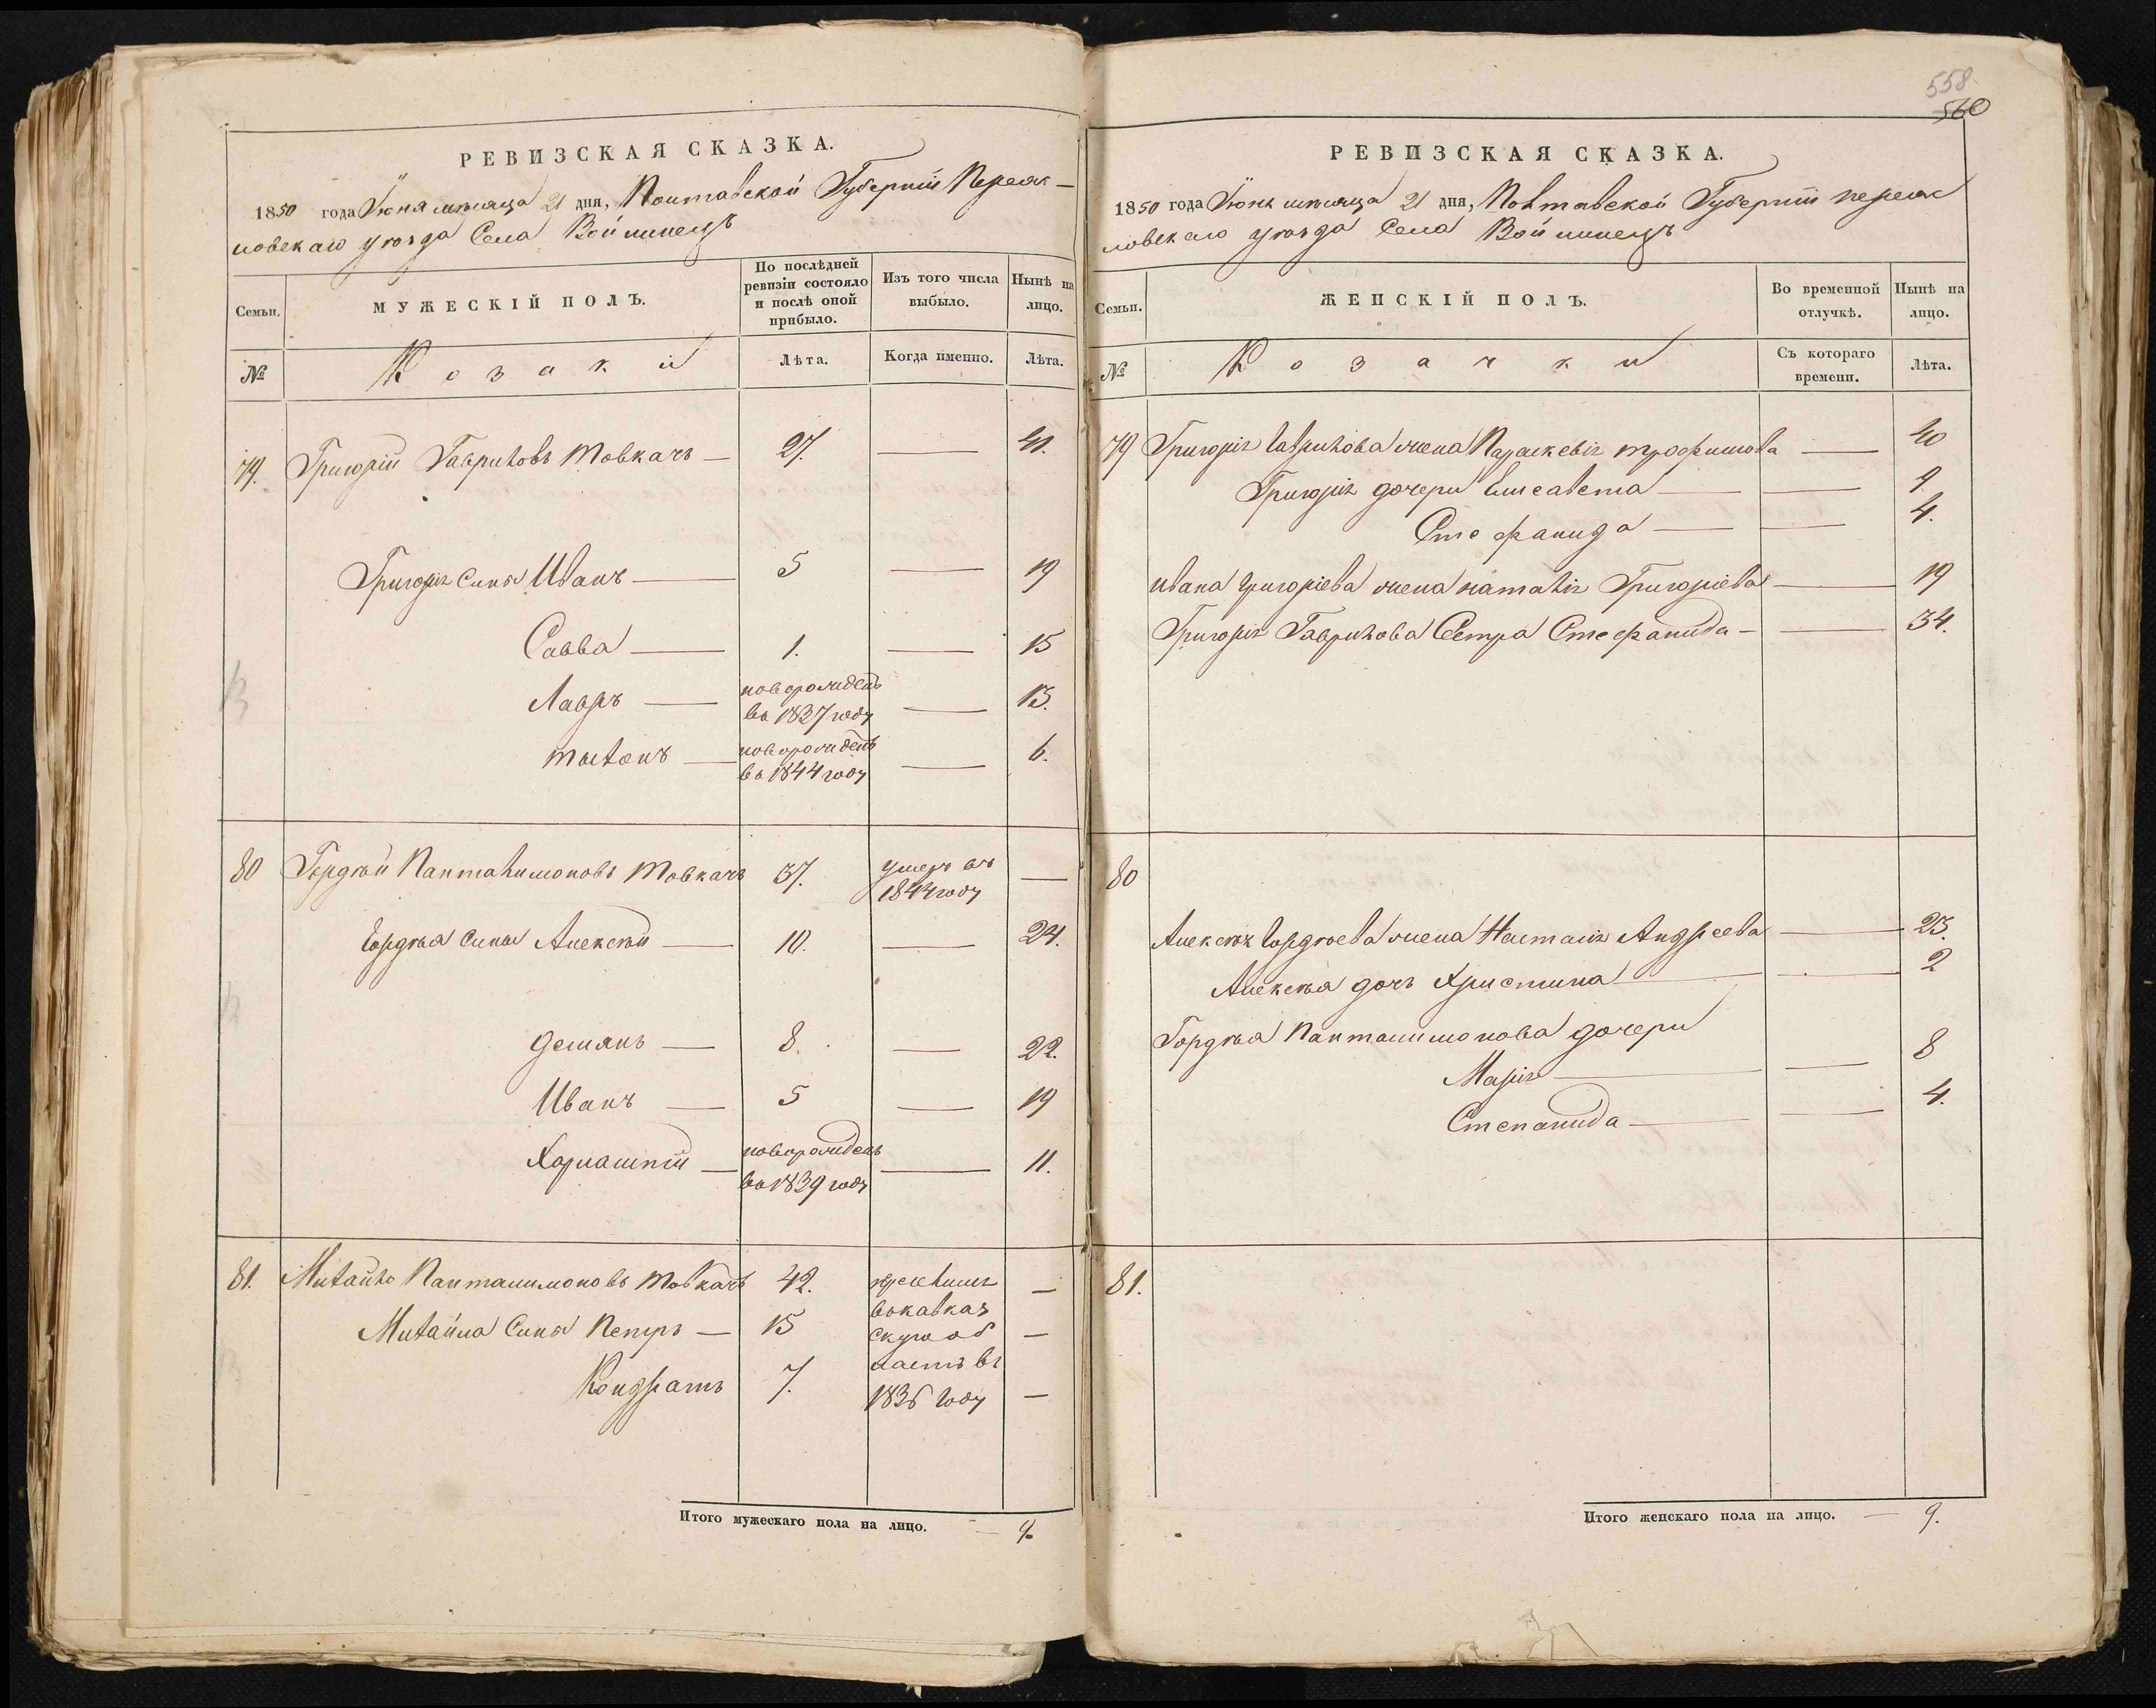 РЕВИЗСКАЯ СКАЗКА.
1850 года Іюня мѣсяца 21 дня, Полтавской Губерніи Переяс-
ловскаго уѣзда Села Войнинецъ
Семьи. МУЖЕСКІЙ ПОЛЪ. По послѣдней ревизіи состояло и послѣ оной прибыло. Изъ того числа выбыло. Нынѣ на лицо.
№ Козаки Лѣта. Когда именно. Лѣта.
79. Григорій Гавриловъ Товкачъ — 27. — 41.
Григорія сины Иванъ — 5 — 19
Савва — 1. — 15
Лавръ — новорожденъ — 13.
въ 1837 году
— новорожденъ — 6.
въ 1844 году
80 Гордѣй Панталимоновъ Товкачъ 37. умеръ въ —
1844 году
Гордѣя сины Алексѣй — 10. — 24.
Демянъ — 8. — 22.
Иванъ — 5 — 19
Харлампій — новорожденъ — 11.
въ 1839 году
81. Михайло Панталимоновъ Товкачъ 42. —
вокавказ
Михайла Сины Петръ — 15 скую об —
ласть въ
Кондратъ 7. 1836 году —
Итого мужескаго пола на лицо. — 9.
558.
560
РЕВИЗСКАЯ СКАЗКА.
1850 года Іюня мѣсяца 21 дня, Полтавской Губерніи Переяс
ловскаго уѣзда Села Войнинецъ
Семьи. ЖЕНСКІЙ ПОЛЪ. Во временной отлучкѣ. Нынѣ на лицо.
№ Козачки Съ котораго времени. Лѣта.
79 Григорія Гаврилова жена Параскевія Трофимова — 40
Григорія дочери Елисавета — — 9.
Стефанида — — 4.
Ивана Григоріева жена Наталія Григоріева — 19
Григорія Гаврилова Сестра Стефанида — — 34.
80
Алексѣя Гордѣева жена Настасія Андреева — 23.
Алексѣя дочъ Христина — — 2
Гордѣя Панталимонова дочери
Марія — — 8
Степанида — — 4.
81.
Итого женскаго пола на лицо. — 9.